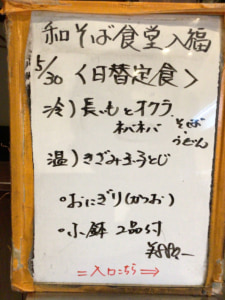 和そば食堂入福
5/30 〈日替定食〉
冷）長いもとオクラ
ネバネバ そば・うどん
温）きざみ玉ろとじ
・おにぎり(かつお)
・小鉢 2品付
¥880-
=入口こちら⇒